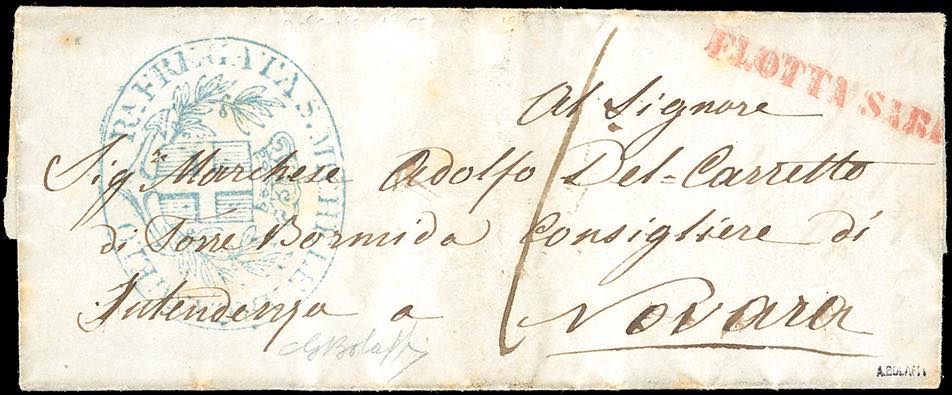 FLOTTA SARD
Al Signore
Sig.r Marchese Adolfo Del=Carretto
di Torre Bormida Consigliere di
Intendenza a Novara
R.A FREGATA S. MICHELE
G Bolaffi
A.BOLAFFI